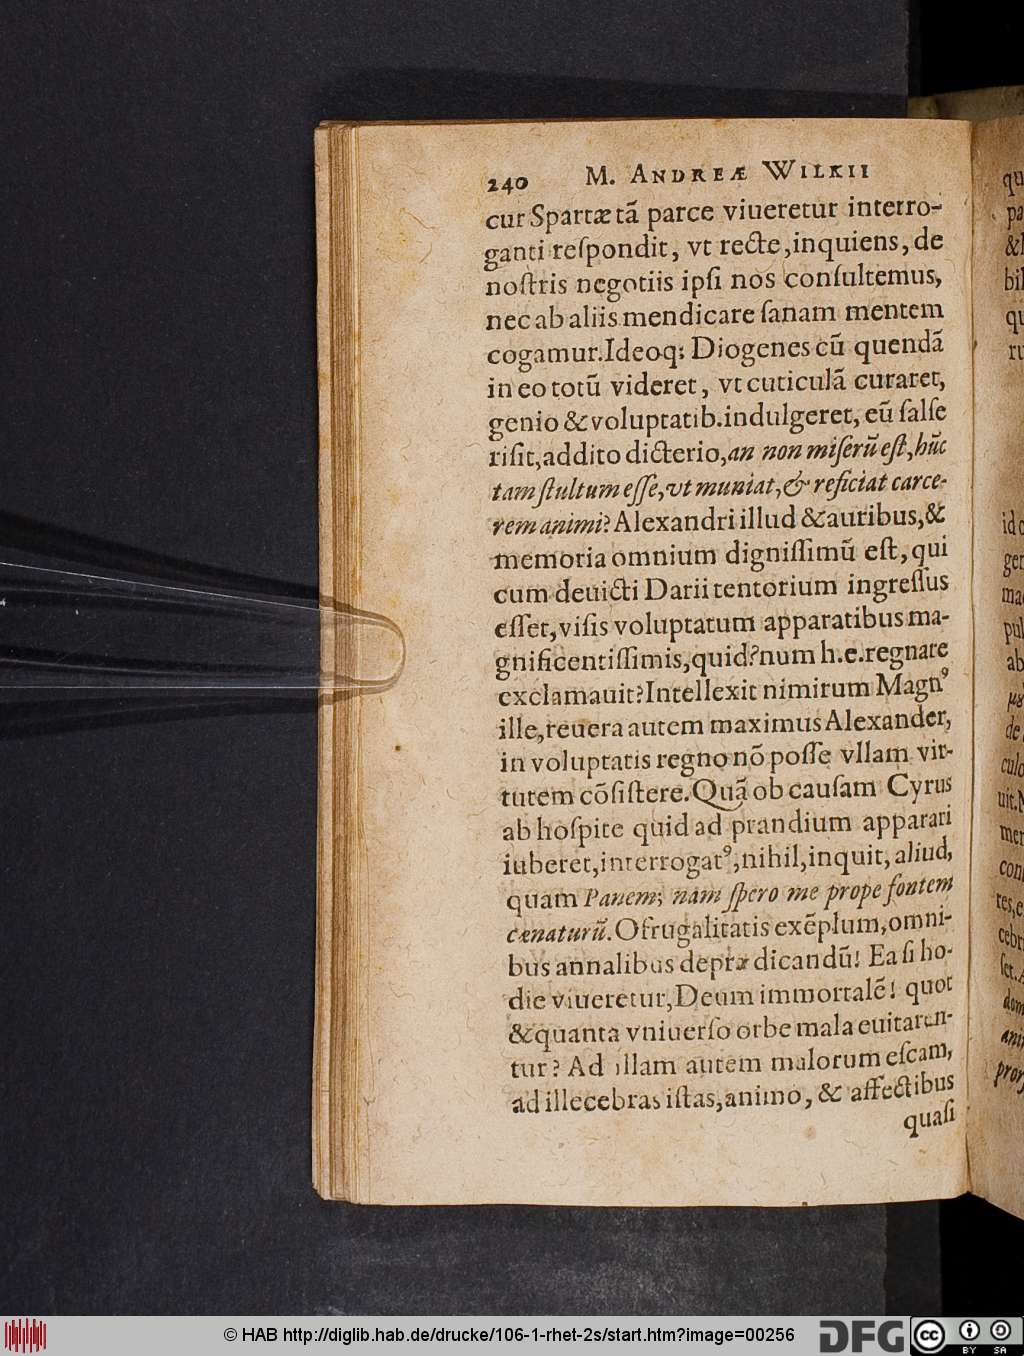 240 M. ANDREÆ WILKII
cur Spartæ tā parce viueretur interro-
ganti reſpondit, vt recte, inquiens, de
noſtris negotiis ipſi nos conſultemus,
nec ab aliis mendicare ſanam mentem
cogamur. Ideoq; Diogenes cū quendā
in eo totū videret, vt cuticulā curaret,
genio & voluptatib. indulgeret, eū ſalſe
riſit, addito dicterio, an non miſerū eſt, hūc
tam ſtultum eſſe, vt muniat, & reficiat carce-
rem animi? Alexandri illud & auribus, &
memoria omnium digniſſimū eſt, qui
cum deuicti Darii tentorium ingreſſus
eſſet, viſis voluptatum apparatibus ma-
gnificentiſſimis, quid? num h. e. regnare
exclamauit? Intellexit nimirum Magnꝰ
ille, reuera autem maximus Alexander,
in voluptatis regno nō poſſe vllam vir-
tutem cōſiſtere. Quā ob cauſam Cyrus
ab hoſpite quid ad prandium apparari
iuberet, interrogatꝰ, nihil, inquit, aliud,
quam Panem; nam ſpero me prope fontem
cænaturū. O frugalitatis exēplum, omni-
bus annalibus deprædicandū! Ea ſi ho-
die viueretur, Deum immortalē! quot
& quanta vniuerſo orbe mala euitaren-
tur? Ad illam autem malorum eſcam,
ad illecebras iſtas, animo, & affectibus
quaſi
qu
pa
bil
qu
id
ger
pul
ab
de
culo
uit.
mer
con
res, e
cebr
ſet.
dom
ani
© HAB http://diglib.hab.de/drucke/106-1-rhet-2s/start.htm?image=00256
DFG
cc
BY SA